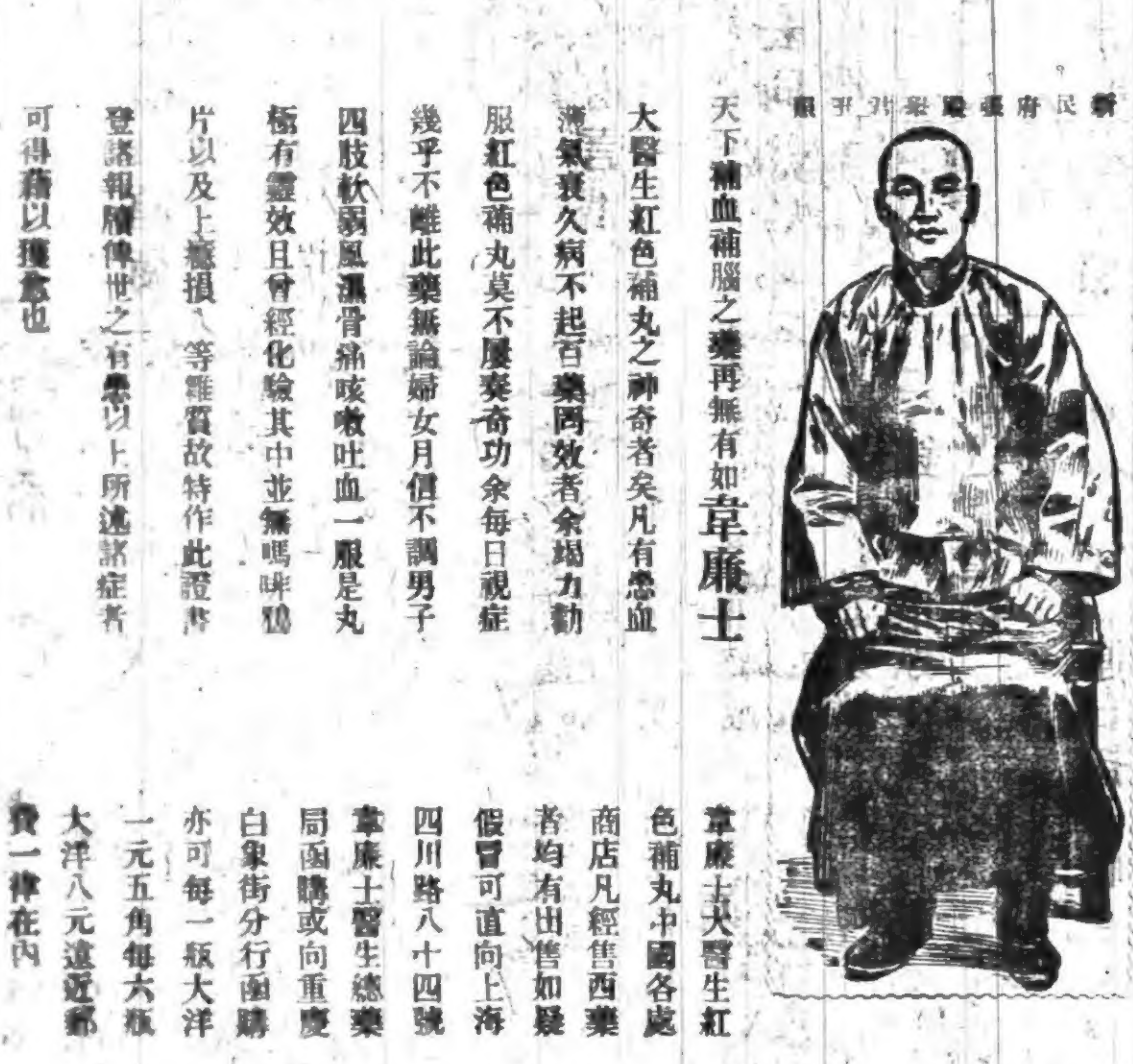 新民府張殿榮君玉照
天下補血補腦之藥再無有如韋廉士
大醫生紅色補丸之神奇者矣凡有患血
薄氣衰久病不起百藥罔效者余竭力勸
服紅色補丸莫不屢奏奇功余每日視症
幾乎不離此藥無論婦女月信不調男子
四肢軟弱風濕骨痛咳嗽吐血一服是丸
極有靈效且曾經化驗其中並無嗎啡鴉
片以及上癮損人等雜質故特作此證書
登諸報牘傳世之有患以上所述諸症者
可得藉以獲愈也
韋廉士大醫生紅
色補丸中國各處
商店凡經售西藥
者均有出售如疑
假冒可直向上海
四川路八十四號
韋廉士醫生總藥
局函購或向重慶
白象街分行函購
亦可每一瓶大洋
一元五角每六瓶
大洋八元遠近郵
費一律在內